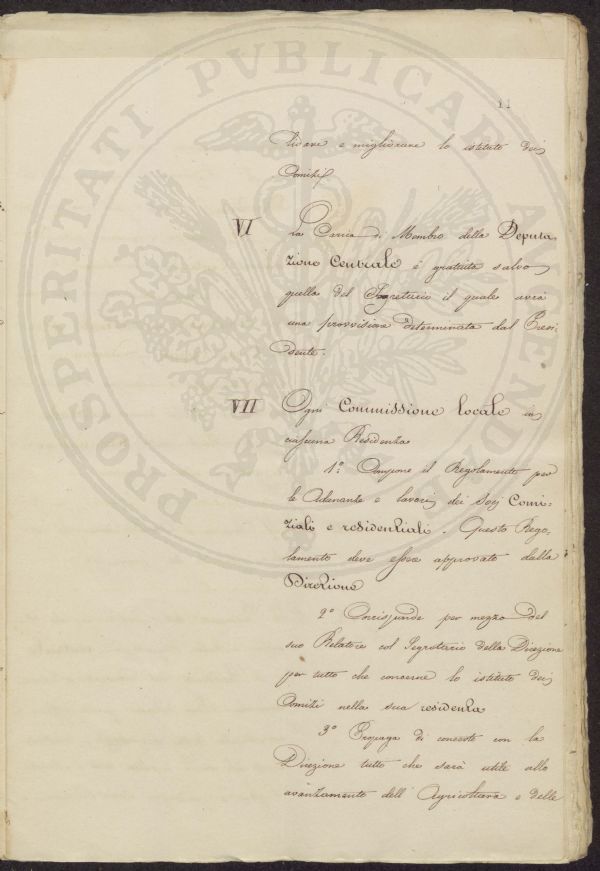 11
lidare e migliorare lo istituto dei
Comizj
VI La Carica di Membro della Deputa-
zione Centrale è gratuita salvo
quella del Segretario il quale avrà
una provvisione determinata dal Presi-
dente.
VII Ogni Commissione locale in
ciascuna Residenza
1º Compone il Regolamento per
le Adunanze e lavori dei Socj Comi-
ziali e residenziali. Questo Rego-
lamento deve essere approvato dalla
Direzione
2º Corrisponde per mezzo del
suo Relatore col Segretario della Direzione
per tutto che concerne lo istituto dei
Comizi nella sua residenza
3º Propaga di concerto con la
Direzione tutto che sarà utile allo
avanzamento dell'Agricoltura e delle
PROSPERITATI PVBLICAE AVGENDAE